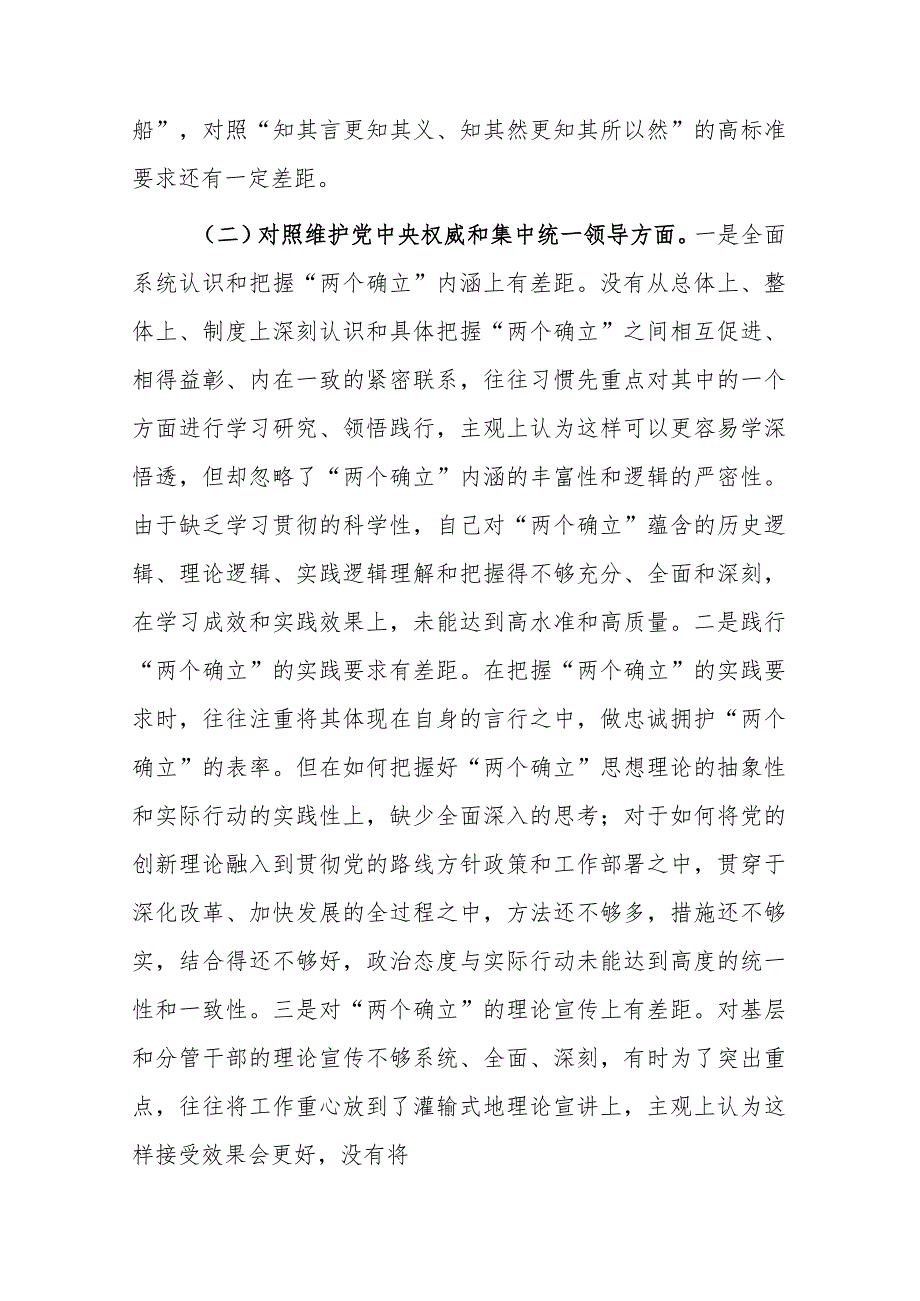 船”，对照“知其言更知其义、知其然更知其所以然”的高标准
要求还有一定差距。
（二）对照维护党中央权威和集中统一领导方面。一是全面
系统认识和把握“两个确立”内涵上有差距。没有从总体上、整
体上、制度上深刻认识和具体把握“两个确立”之间相互促进、
相得益彰、内在一致的紧密联系，往往习惯先重点对其中的一个
方面进行学习研究、领悟践行，主观上认为这样可以更容易学深
悟透，但却忽略了“两个确立”内涵的丰富性和逻辑的严密性。
由于缺乏学习贯彻的科学性，自己对“两个确立”蕴含的历史逻
辑、理论逻辑、实践逻辑理解和把握得不够充分、全面和深刻，
在学习成效和实践效果上，未能达到高水准和高质量。二是践行
“两个确立”的实践要求有差距。在把握“两个确立”的实践要
求时，往往注重将其体现在自身的言行之中，做忠诚拥护“两个
确立”的表率。但在如何把握好“两个确立”思想理论的抽象性
和实际行动的实践性上，缺少全面深入的思考；对于如何将党的
创新理论融入到贯彻党的路线方针政策和工作部署之中，贯穿于
深化改革、加快发展的全过程之中，方法还不够多，措施还不够
实，结合得还不够好，政治态度与实际行动未能达到高度的统一
性和一致性。三是对“两个确立”的理论宣传上有差距。对基层
和分管干部的理论宣传不够系统、全面、深刻，有时为了突出重
点，往往将工作重心放到了灌输式地理论宣讲上，主观上认为这
样接受效果会更好，没有将